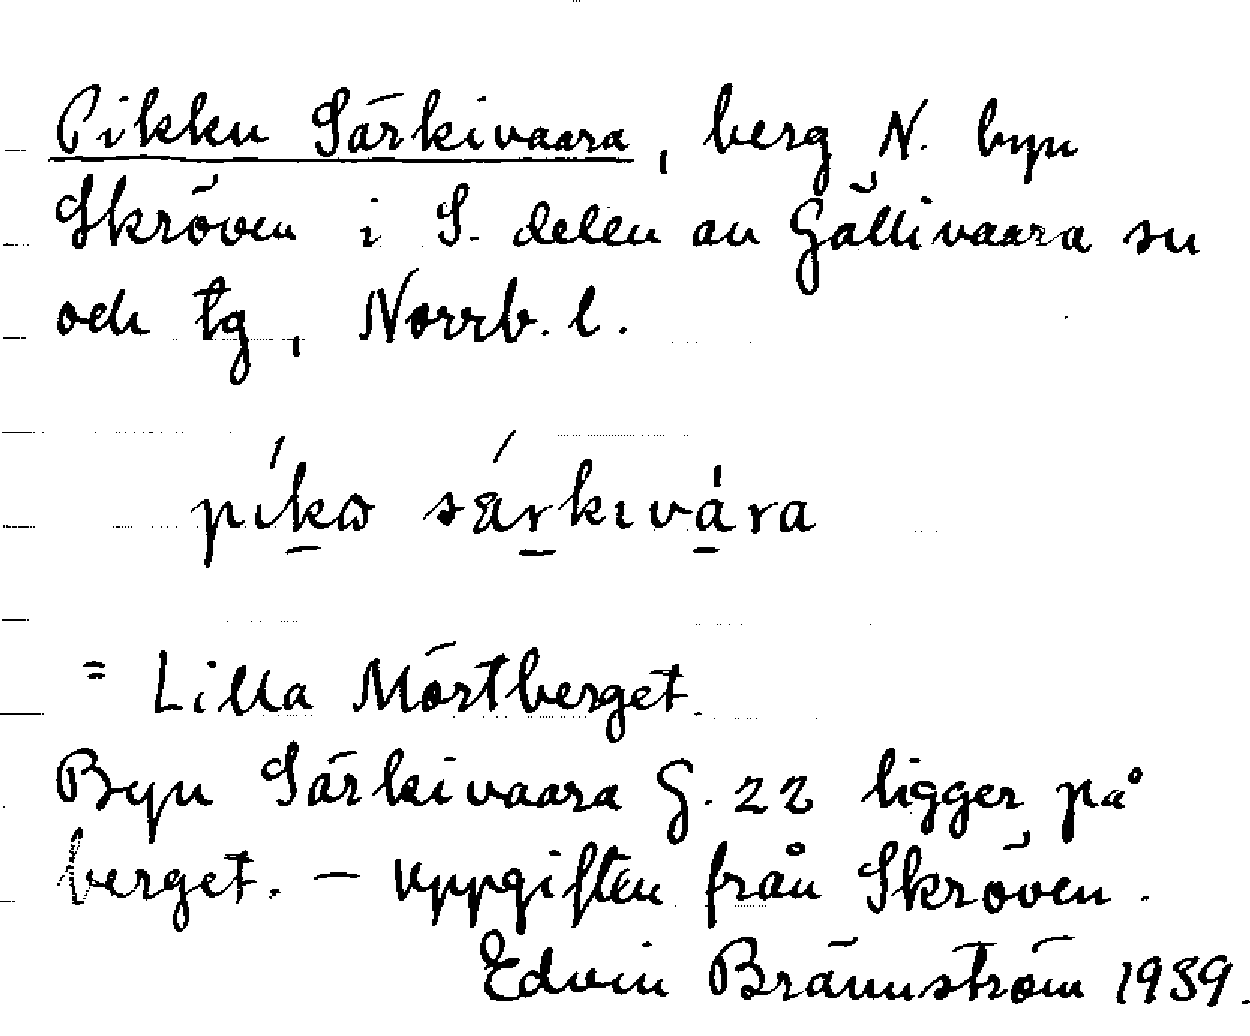 Pikku Särkivaara, berg N. byn
Skröven i S. delen av Gällivaara sn
och tg, Norrb. l.
píkω sǽrkɩvára
= Lilla Mörtberget.
Byn Särkivaara G. 22 ligger på
berget. – Uppgiften från Skröven.
Edvin Brännström 1939.